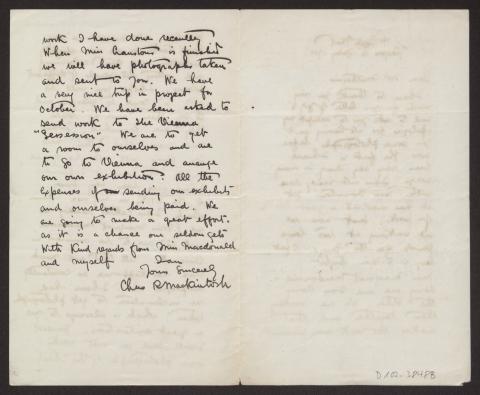 work I have done recently
When Miss Cranstons is finished
we will have photographs taken
and sent to you. We have
a very nice trip in project for
October. We have been asked to
send work to the Vienna
"Secession" We are to get
a room to ourselves and are
to go to Vienna and arrange
our own exhibition. All the
expenses of sending our exhibits
and ourselves being paid. We
are going to make a great effort.
as it is a chance one seldom gets
With Kind regards from Miss Macdonald
and myself I am
Yours Sincerely
Chas R Mackintosh
D.102-38488